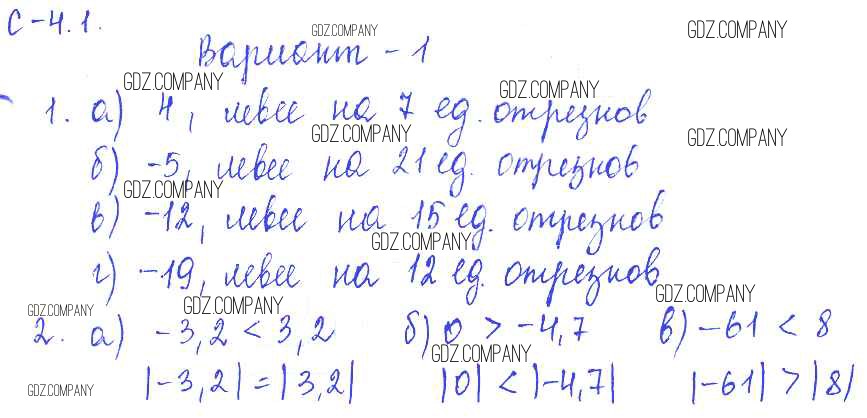 С-4.1.
Вариант - 1
1. а) 4, левее на 7 ед. отрезков
б) -5, левее на 21 ед. отрезков
в) -12, левее на 15 ед. отрезков
г) -19, левее на 12 ед. отрезков
2. а) -3,2 < 3,2 б) 0 > -4,7 в) -61 < 8
|-3,2| = |3,2| |0| < |-4,7| |-61| > |8|
GDZ.COMPANY
GDZ.COMPANY
GDZ.COMPANY
GDZ.COMPANY
GDZ.COMPANY
GDZ.COMPANY
GDZ.COMPANY
GDZ.COMPANY
GDZ.COMPANY
GDZ.COMPANY
GDZ.COMPANY
GDZ.COMPANY
GDZ.COMPANY